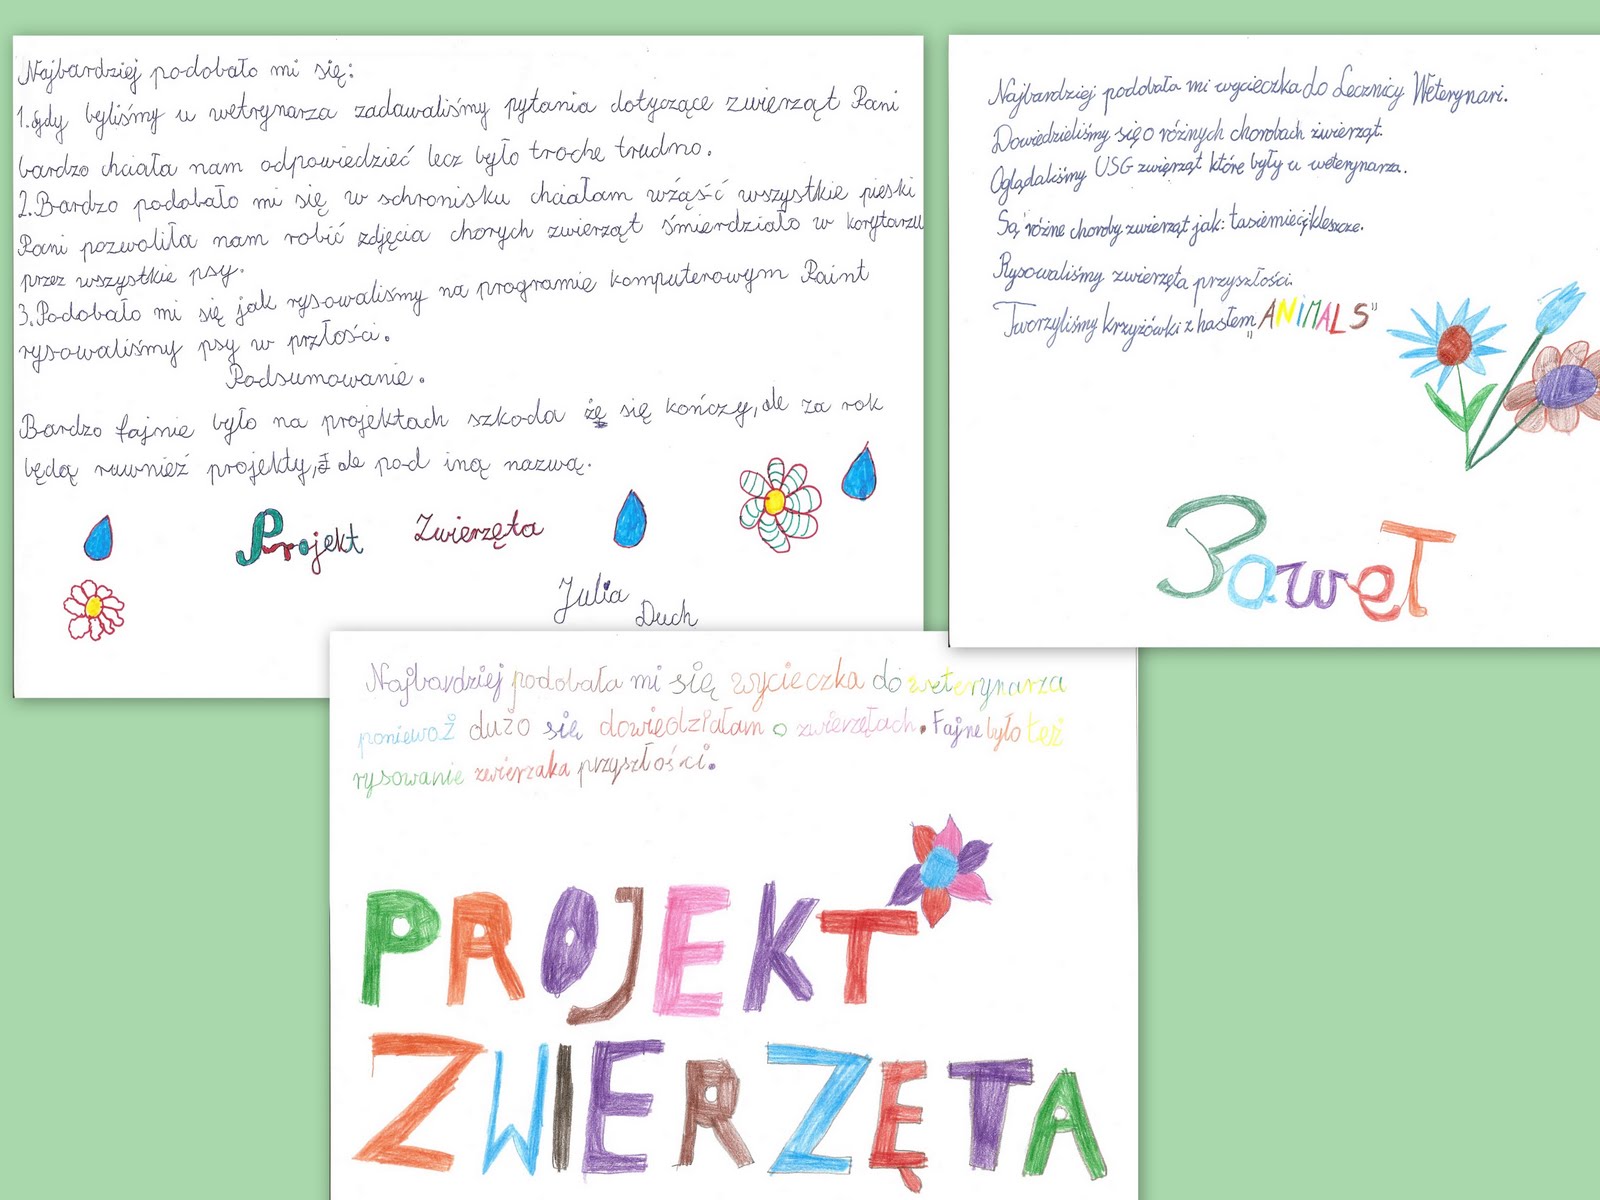 Najbardziej podobało mi się:
1. gdy byliśmy u wetrynarza zadawaliśmy pytania dotyczące zwierząt Pani
bardzo chciała nam odpowiedzieć lecz było troche trudno.
2. Bardzo podobało mi się w schronisku chciałam wźąść wszystkie pieski
Pani pozwoliła nam robić zdjęcia chorych zwierząt śmierdziało w korytarzu
przez wszystkie psy.
3. Podobało mi się jak rysowaliśmy na programie komputerowym Paint
rysowaliśmy psy w przłości.
Podsumowanie.
Bardzo fajnie było na projektach szkoda że się kończy, ale za rok
będą ruwnież projekty, ale pod iną nazwą.
Projekt Zwierzęta
Julia
Duch
Najbardziej poddobała mi wycieczka do Lecznicy Weterynari.
Dowiedzieliśmy się o różnych chorobach zwierząt.
Oglądaliśmy USG zwierząt które były u weterynarza.
Są różne choroby zwierząt jak: tasiemiec i kleszcze.
Rysowaliśmy zwierzęta przyszłości.
Tworzyliśmy krzyżówki z hasłem „ANIMALS"
Paweł
Najbardziej podobała mi się wycieczka do weterynarza
ponieważ dużo się dowiedziałam o zwierzętach. Fajne było też
rysowanie zwierzaka przyszłości.
PROJEKT
ZWIERZĘTA